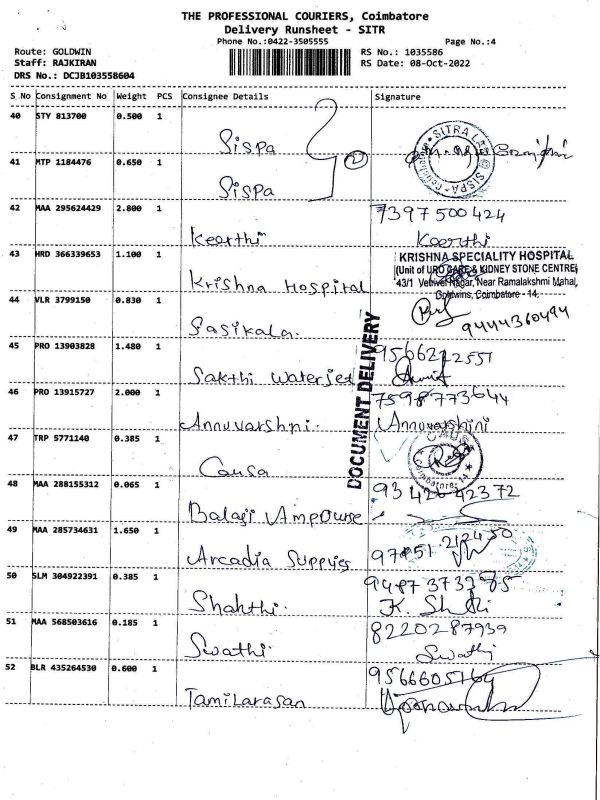 THE PROFESSIONAL COURIERS, Coimbatore
Delivery Runsheet - SITR
Phone No.:0422-3505555
Page No.:4
Route: GOLDWIN
Staff: RAJKIRAN
DRS No.: DCJB103558604
RS No.: 1035586
RS Date: 08-Oct-2022
S No Consignment No Weight PCS Consignee Details Signature
40 STY 813700 0.500 1
Sispa
SITRA
SISPA
41 MTP 1184476 0.650 1
Sispa
2
42 MAA 295624429 2.800 1
7397500424
Keerthi Keerthi
43 HRD 366339653 1.100 1
KRISHNA SPECIALITY HOSPITAL
(Unit of URO CARE & KIDNEY STONE CENTRE)
Krishna Hospital
43/1 Vetrivel Nagar, Near Ramalakshmi Mahal,
Goldwins, Coimbatore - 14.
44 VLR 3799150 0.830 1
9444360494
Sasikala.
45 PRO 13903828 1.480 1
DOCUMENT DELIVERY
Sakthi Waterjet
46 PRO 13915727 2.000 1
7598773644
Annuvarshni. Annuvarshini
47 TRP 5771140 0.385 1
Causa
CAUSA
Coimbatore-14
48 MAA 288155312 0.065 1
Balaji
49 MAA 285734631 1.650 1
97851 212450
Arcadia Supplies
50 SLM 304922391 0.385 1
Shakthi.
51 MAA 568503616 0.185 1
8220287939
Swathi. Swathi
52 BLR 435264530 0.600 1
9566605764
Tamilarasan